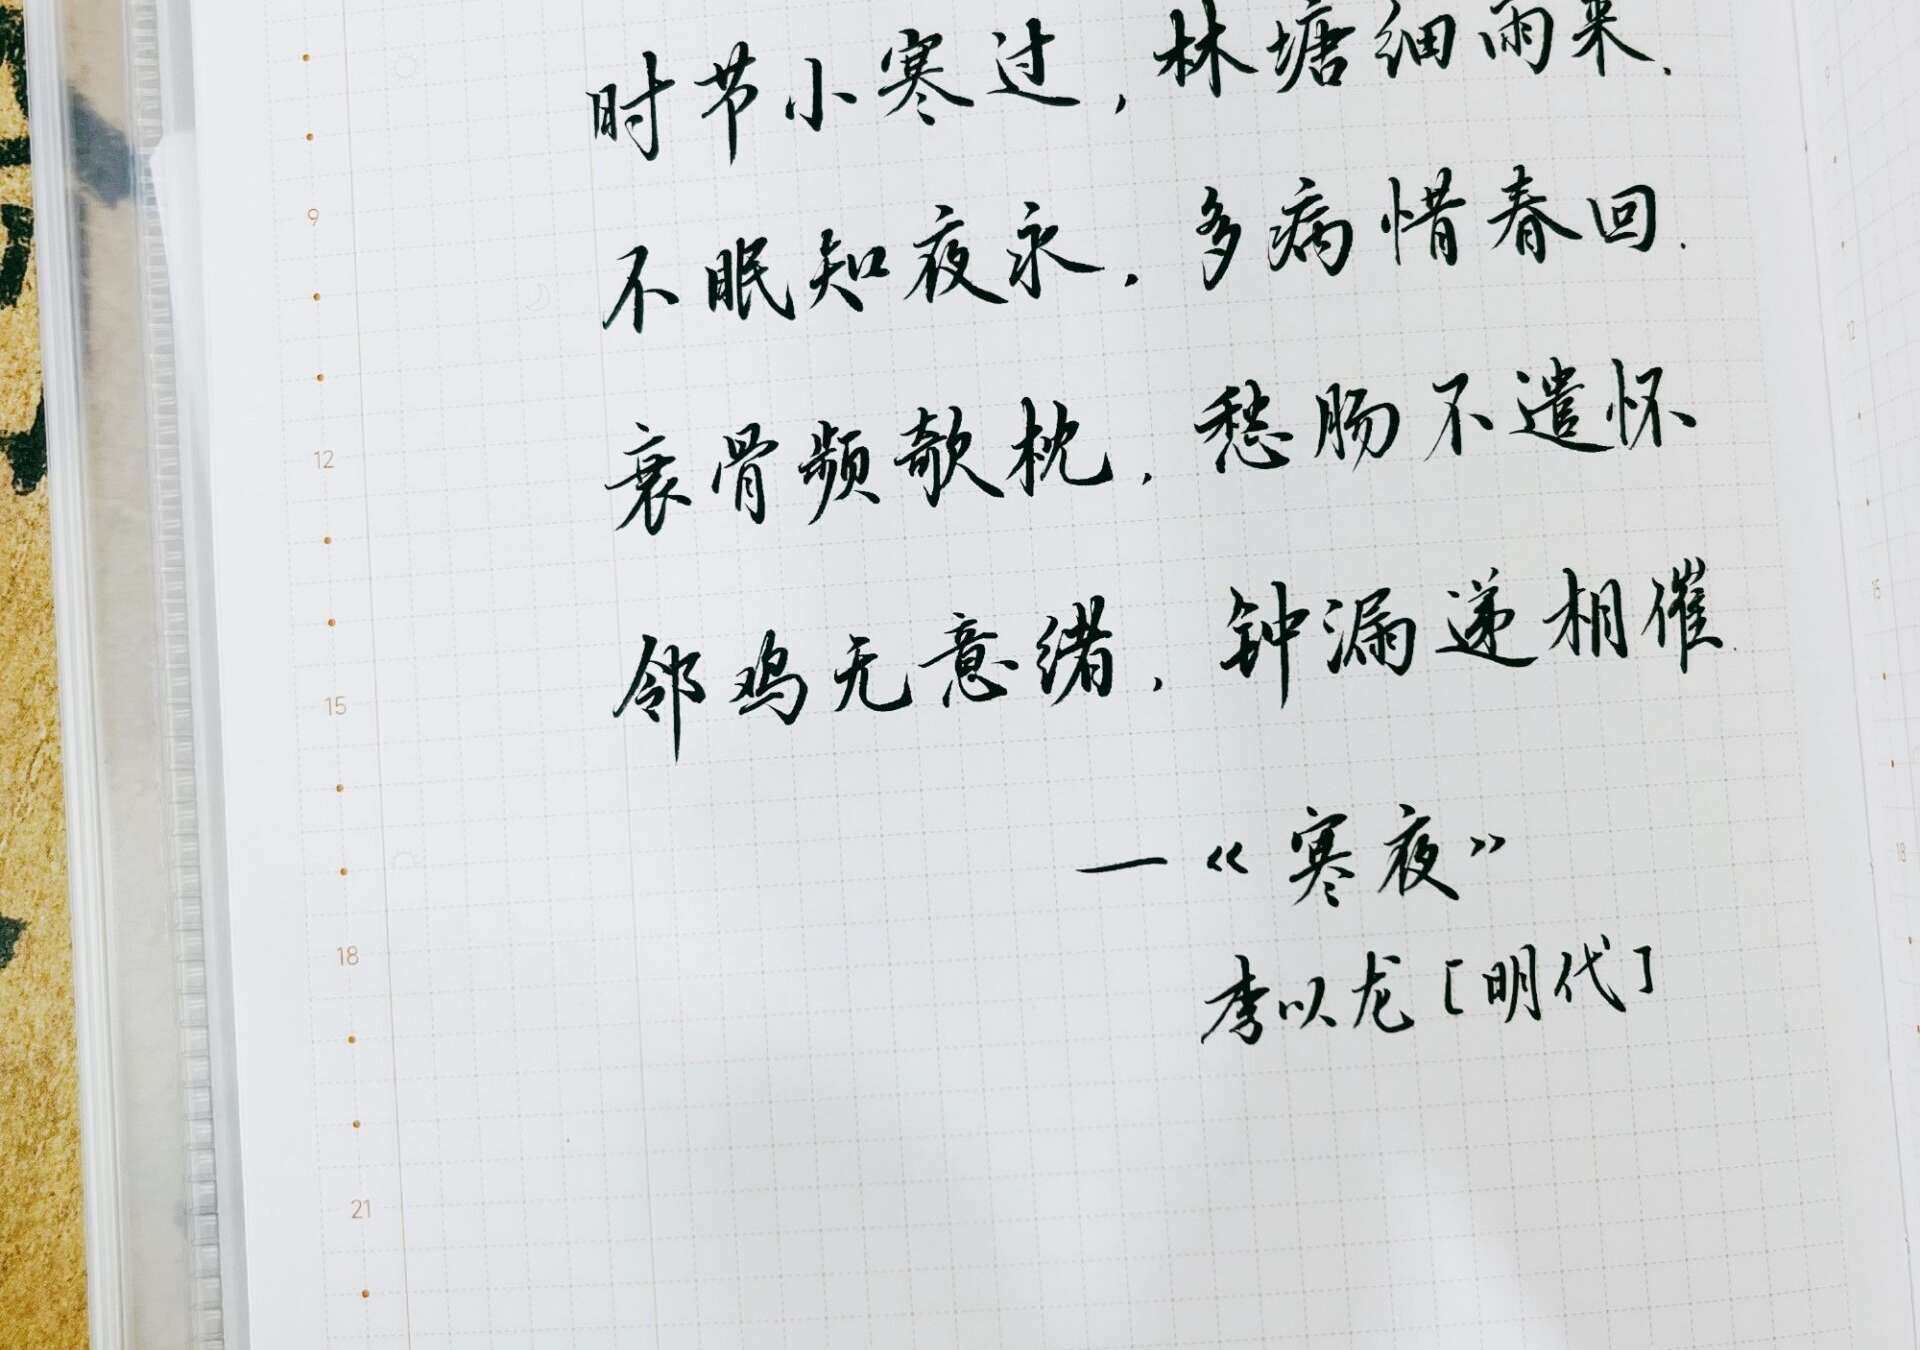 时节小寒过，林塘细雨来.
不眠知夜永，多病惜春回.
衰骨频欹枕，愁肠不遣怀
邻鸡无意绪，钟漏递相催.
—《寒夜》
李以龙[明代]
9
12
15
18
21
9
12
15
18